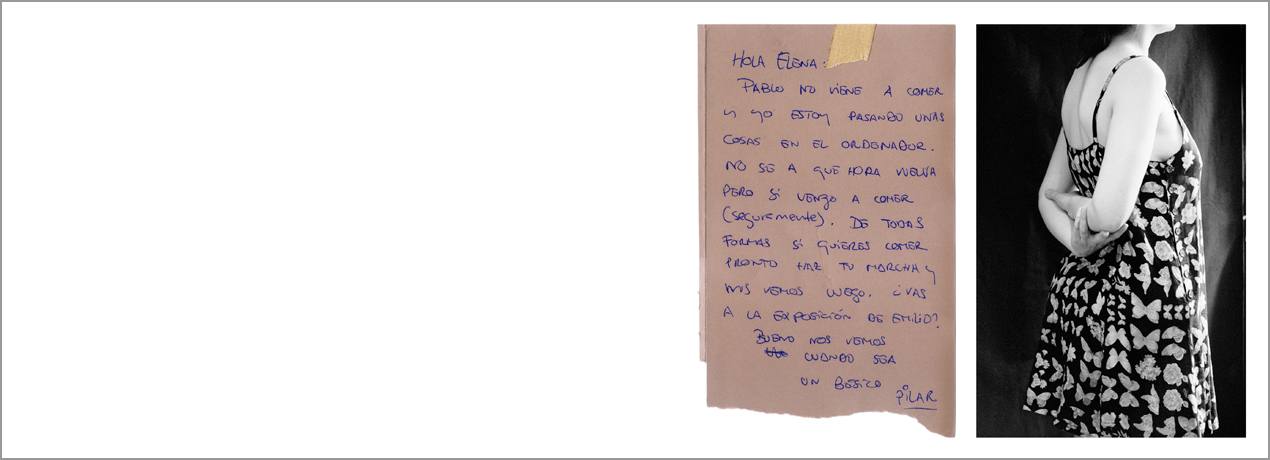 HOLA ELENA:
PABLO NO VIENE A COMER
Y YO ESTOY PASANDO UNAS
COSAS EN EL ORDENADOR.
NO SE A QUE HORA VUELVA
PERO SI VENGO A COMER
(seguramente). DE TODAS
FORMAS SI QUIERES COMER
PRONTO HAZ TU MARCHA Y
NOS VEMOS LUEGO. ¿VAS
A LA EXPOSICIÓN DE EMILIO?
BUENO NOS VEMOS
CUANDO SEA
UN BESICO
PILAR